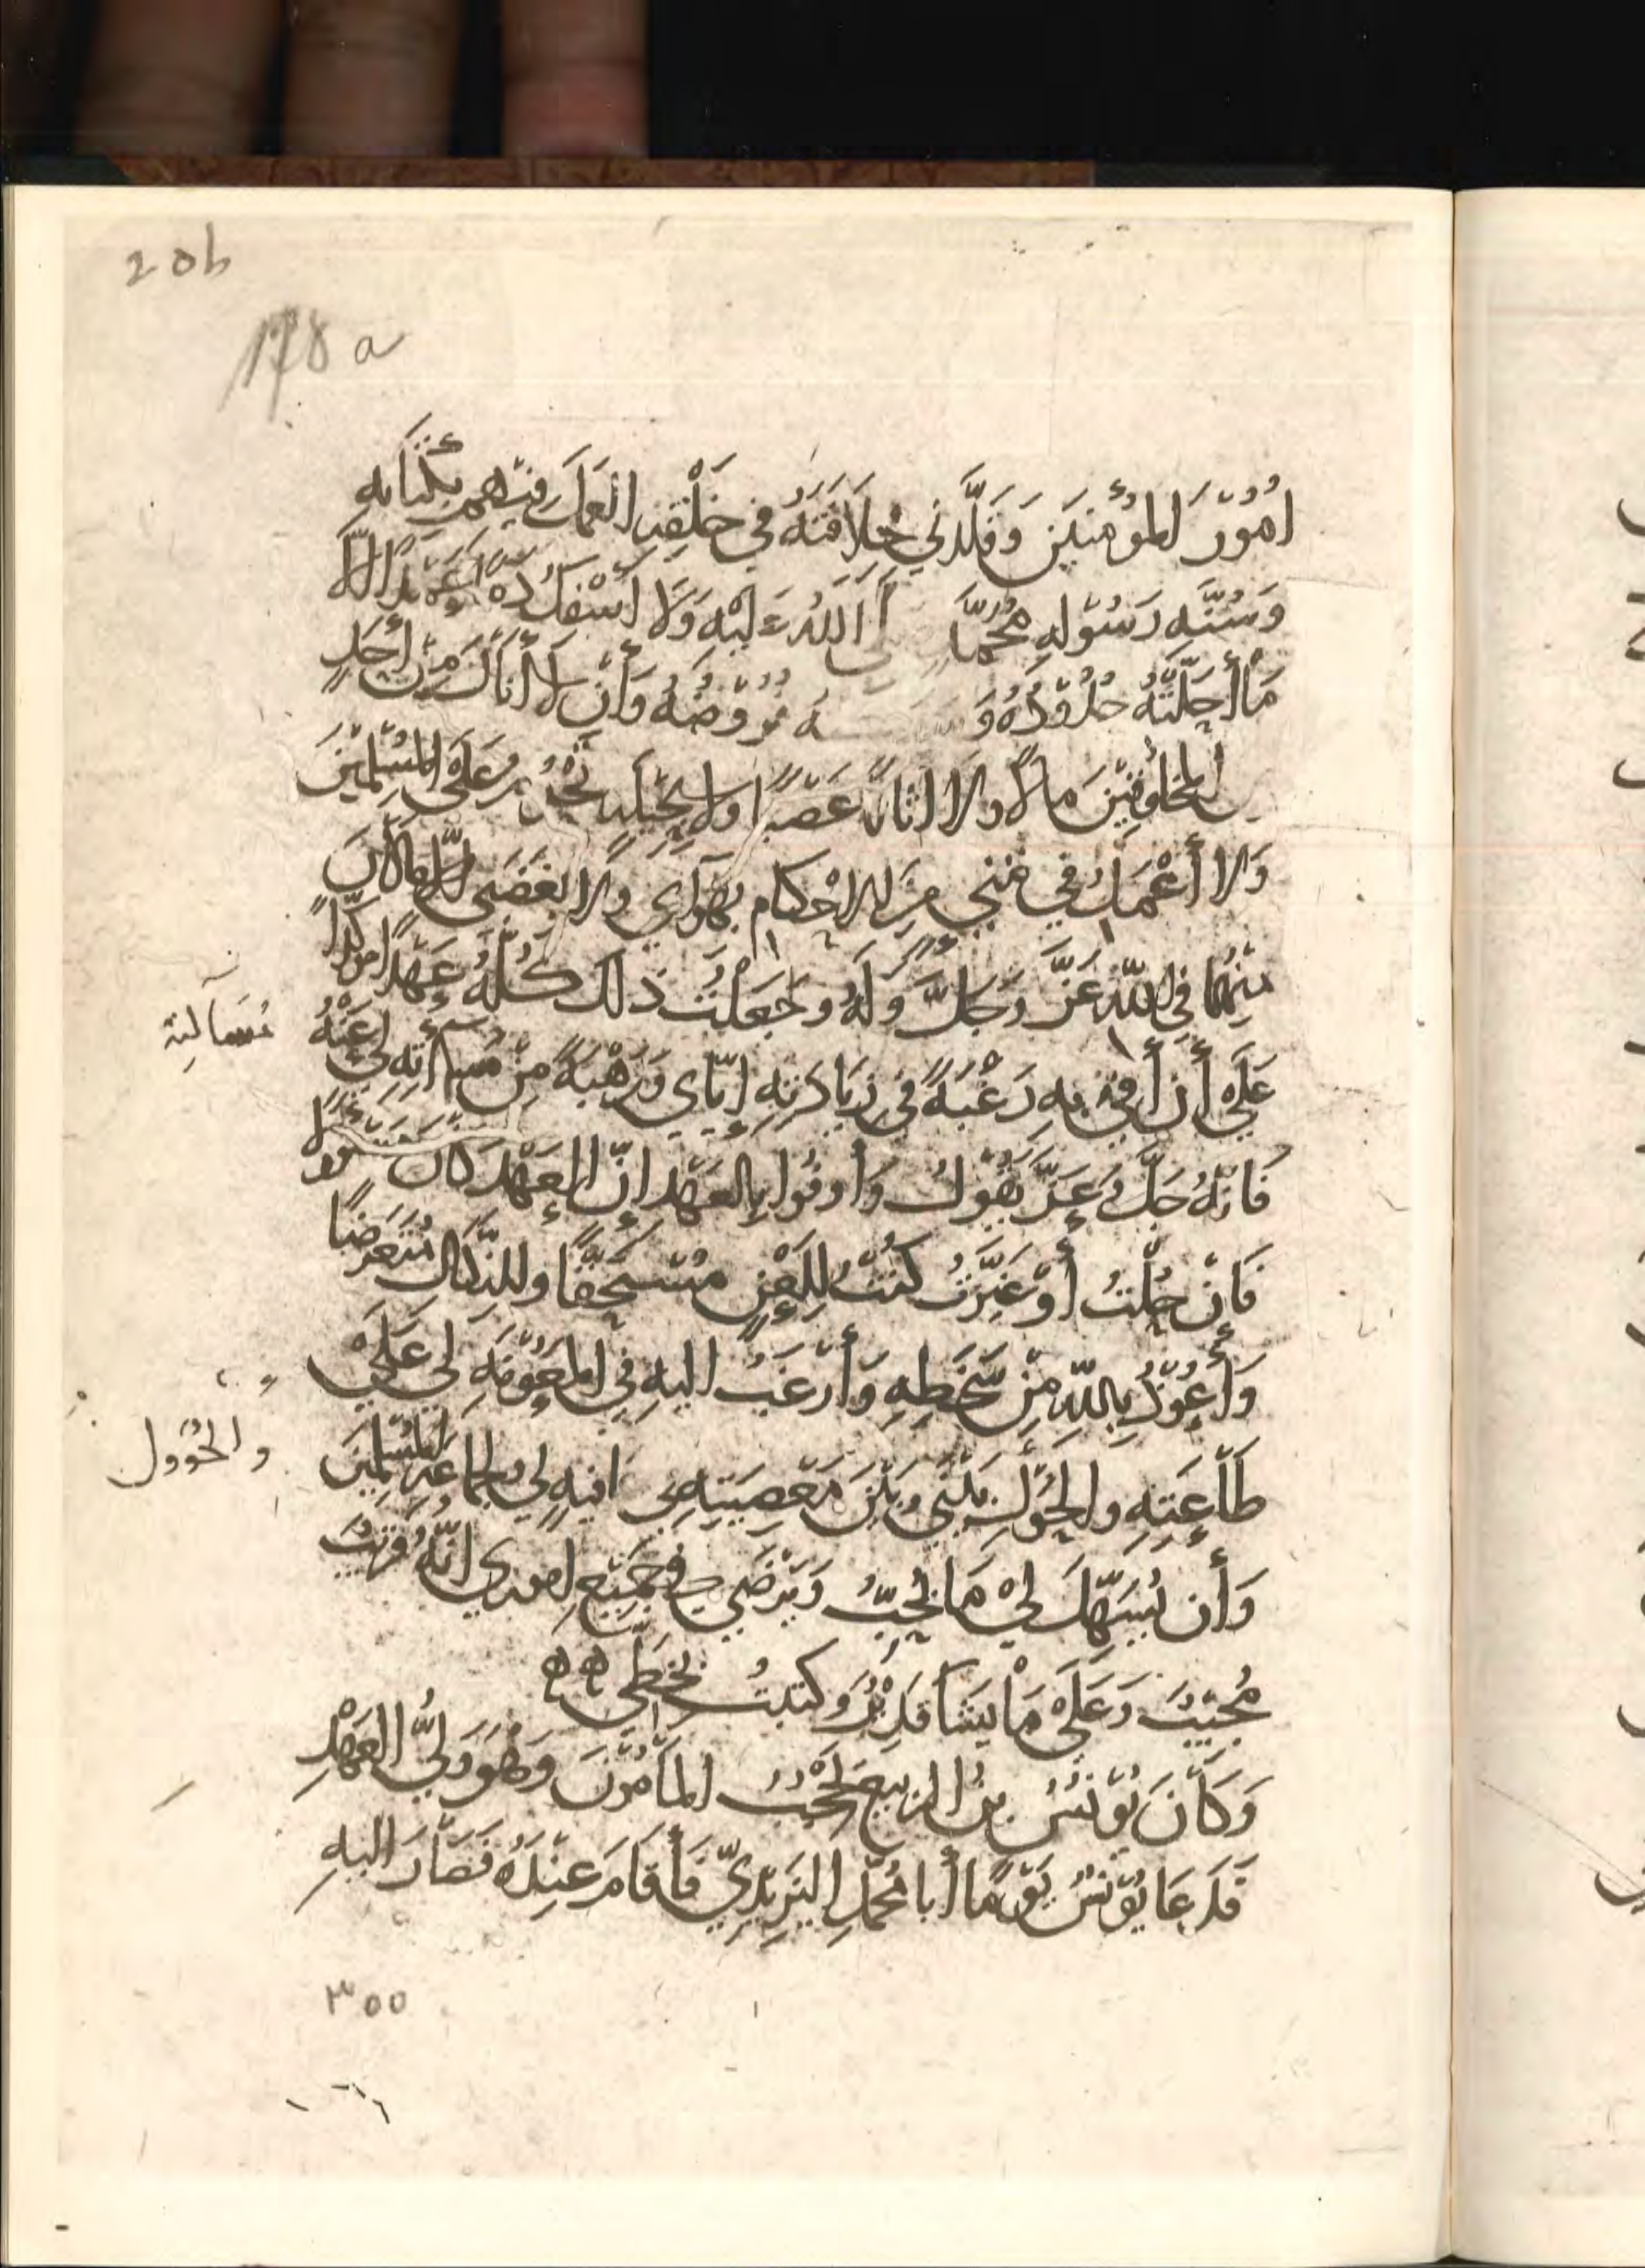 20b
178 a
أُمُوْرَ المُؤْمِنِيْنَ وَقَلَّدَنِي خِلَافَتَهُ فِي خَلْقِهِ العَمَلَ فِيْهِمْ بِكِتَابِهِ
وَسُنَّةِ رَسُوْلِهِ مُحَمَّدٍ صلى اللهُ عَلَيْهِ وَلَا أَسْفِكُ دَمًا عَمْدًا إِلَّا
مَا أَحَلَّتْهُ حُدُوْدُهُ وَ فُرُوْضُهُ وَأَنْ لَا أَنَالَ مِنْ أَحَدٍ
من المخلوقِيْنَ مَالًا وَلَا أَثَاثًا غَصْبًا وَلَا بِحِيْلَةٍ تَحْرُمُ عَلَى المُسْلِمِيْنَ
وَلَا أَعْمَلُ فِي شيء مِنَ الأَحْكَامِ بِهَوَايَ وَلَا بِغَضَبِي إِلَّا مَا كَانَ
مِنْهُمَا فِي اللهِ عَزَّ وَجَلَّ وَلَهُ وَجَعَلْتُ ذلك كُلَّهُ عَهْدًا مُؤكّدًا
عَلَيَّ أَنْ أَفِيَ بِهِ رَغْبَةً فِي زِيَادَتِهِ إِيَّايَ وَرَهْبَةً مِنْ مُسَاءَلَتِهِ لِي عَنْهُ
مُسَآلته
فَإِنَّهُ جَلَّ وَعَزَّ يَقُوْلُ وَأَوفُوا بِالعَهْدِ إِنَّ العَهْدَ كَانَ مَسْئُولًا
فَإِنْ حُلْتُ أَوْ غَيَّرْتُ كُنْتُ لِلَّعْنِ مُسْتَحِقًّا وَللنَّكَالِ مُتَعَرِّضًا
وَأَعُوْذُ بِاللهِ مِنْ سَخَطِهِ وَأَرْغَبُ إِلَيهِ فِي المَعُوْنَةِ لِي عَلَى
طَاعَتِهِ وَالحَؤُلِ بَيْنِي وَبَيْنَ مَعْصِيَتِهِ في عافيةٍ لِي وَلجماعةِ المُسْلِمِيْنَ
والحُؤُول
وَأَن يُسَهِّلَ لِيْ مَا يُحِبُّ وَيَرْضَى فِي جَمِيْعِ امُورِي إِنَّهُ قَرِيْبٌ
مُجِيْبٌ وَعَلَى مَا يَشَا قَدِيْرٌ وَكتبتُ بِخَطِّي هه
وَكَانَ يُوْنُسُ بْنُ الرَّبِيْعِ يَحْجُبُ المَأْمُوْنَ وَهُوَ وَلِيُّ العَهْدِ
فَدَعَا يُوْنُسُ يَوْمًا أَبا مُحَمَّدٍ اليَزِيْدِيَّ فَأَقَامَ عِنْدَهُ فَصَارَ إِلَيهِ
٣٥٥